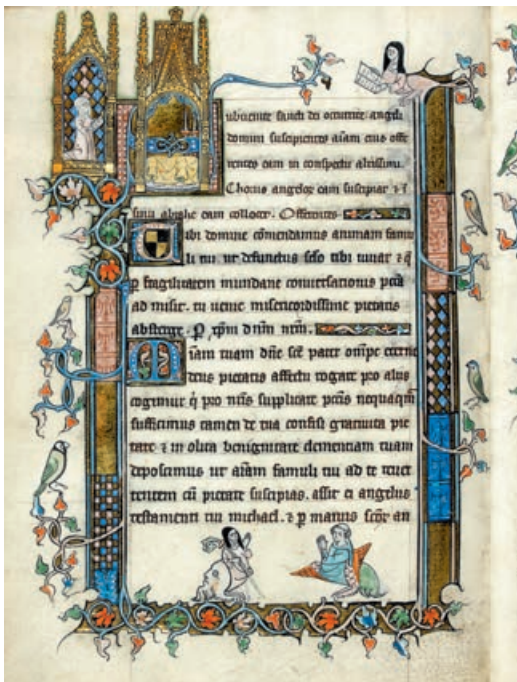 ubuenite sancti dei occurrite angeli
domini suscipientes aīam eius offe
rentes eam in conspectu altissimi.
Chorus angelor eam suscipiat ⁊ ī
sinu abrahe eam collocet. Offerentes
Tibi domine cōmendamus animam famu
li tui ut defunctus sclo tibi uiuat ⁊ q̄
p fragilitatem mundane conuersationis pccā
ad misit. tu uenie misericordissime pietatis
absterge. P xpm dnm nrm.
Miam tuam dne sce pater omps eterne
deus pietatis affectu rogare pro aliis
cogimur q̄ pro nris supplicare pccis nequaqm
sufficimus tamen de tua confisi gratuita pie
tate ⁊ in olita benignitate clementiam tuam
deposcimus ut aīam famuli tui ad te reuer
tentem cū pietate suscipias. assit ei angelus
testamenti tui michael. ⁊ p manus scōr an